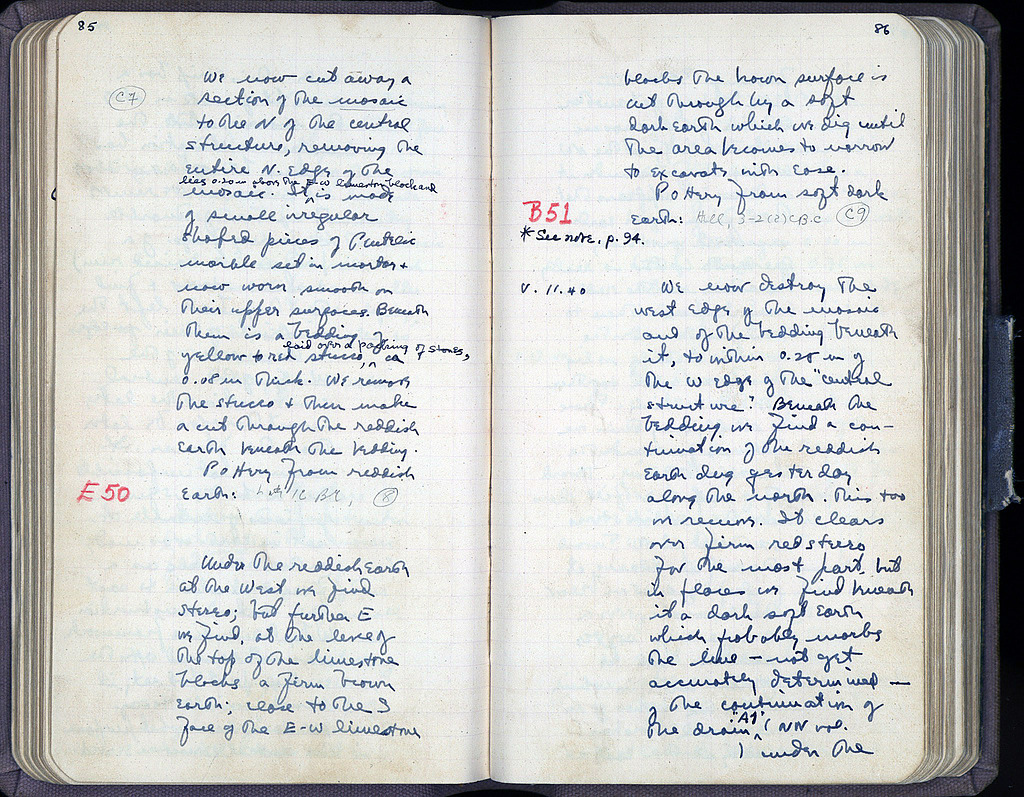 85
We now cut away a
C7
section of the mosaic
to the N of the central
structure, removing the
entire N. Edge of the
lies 0.20m above the E-W limestone block and
mosaic. It is made
of small irregular
shaped pieces of Pentelic
marble set in mortar +
now worn smooth on
their upper surfaces. Beneath
them is a bedding of
laid over a packing of stones,
yellow to red stucco, ca
0.08 m thick. We remove
the stucco + then make
a cut through the reddish
Earth beneath the bedding.
Pottery from reddish
E 50
Earth:
8
Under the reddish Earth
at the West we find
stereo; but further E
we find, at the level of
the top of the limestone
blocks a firm brown
Earth; close to the S
face of the E-W limestone
86
blocks the brown surface is
cut through by a soft
dark Earth which we dig until
the area becomes to narrow
to excavate with Ease.
Pottery from soft dark
B51
Earth: Hell, 3-2(?)c B.C. C9
* See note, p. 94.
V. 11. 40
We now destroy the
west Edge of the mosaic
and of the bedding beneath
it, to within 0.20 m of
the W edge of the "central
structure". Beneath the
bedding we find a con-
tinuation of the reddish
Earth dug yesterday
along the north. This too
we remove. It clears
over firm red stereo
for the most part, but
in places we find beneath
it a dark soft Earth
which probably marks
the line — not yet
accurately determined —
of the continuation of
"A1"
the drain ( NN vol.
) under the